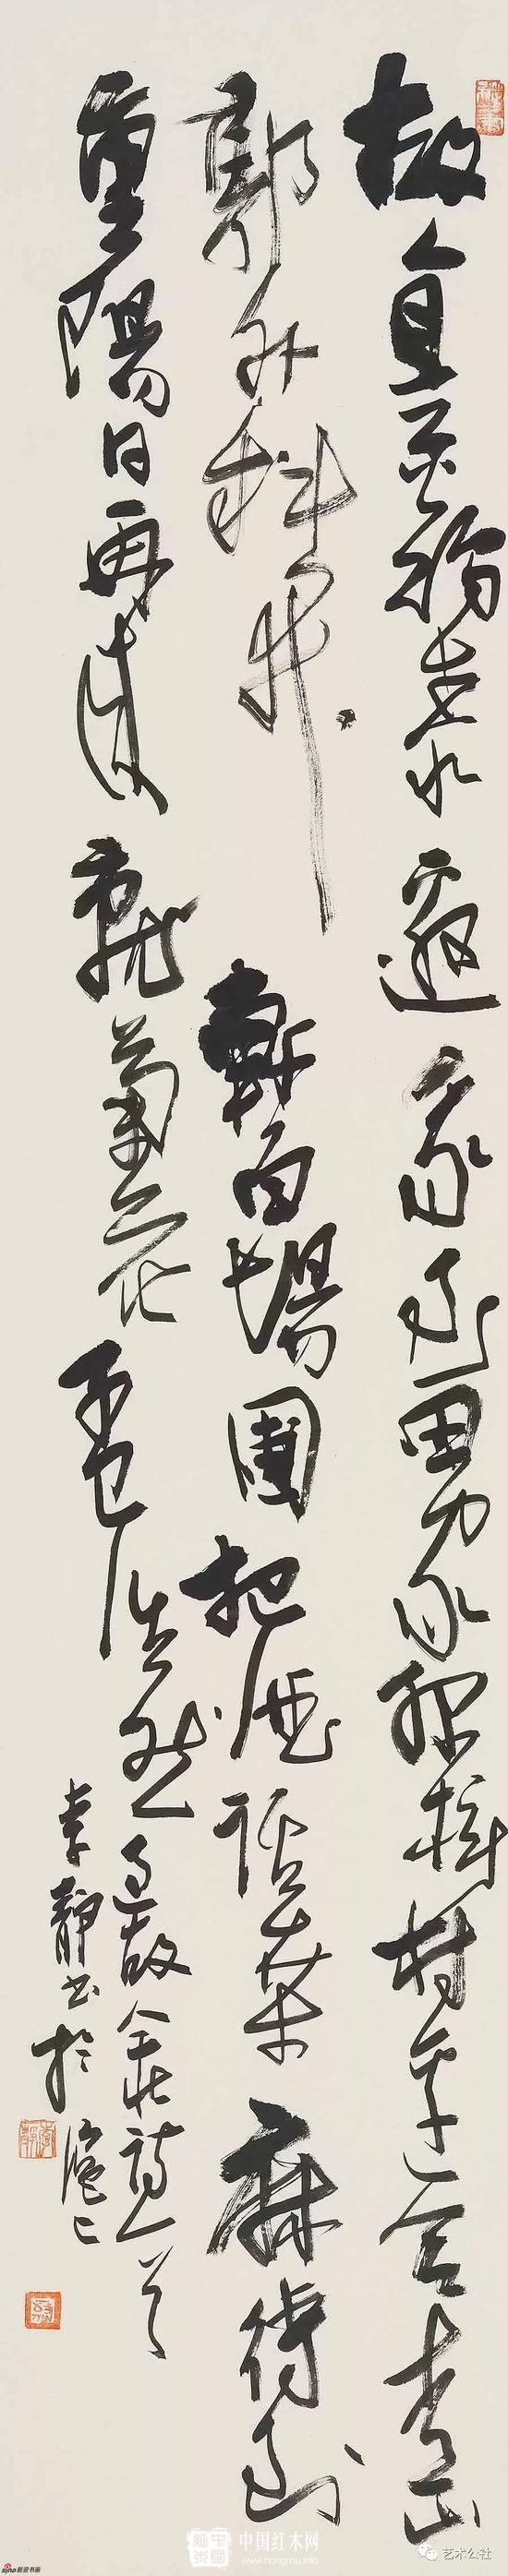 故人具鷄黍邀我至田家綠樹村邊合青山
郭外斜開軒面場圃把酒話桑麻待到
重陽日再來就菊花孟浩然過故人莊詩一首
李靜書於滬上
sina新浪书画
中国红木网
www.hongmu.info
艺术公社